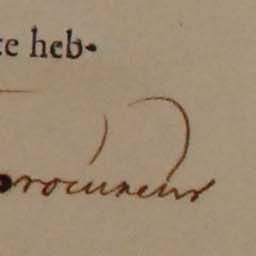 te heb-
procureur